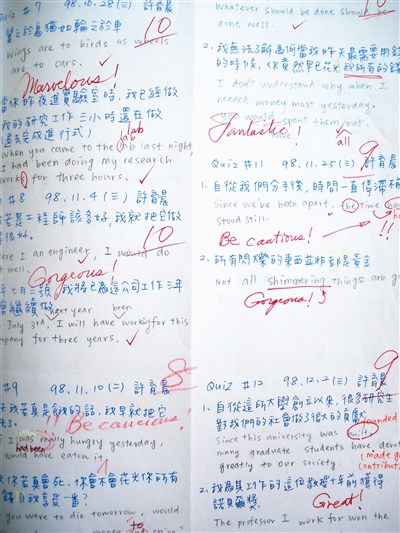 Quiz # 7 98.10.28(三) 許育晨
10
翼之於鳥猶如輪之於車
Wings are to birds as wheels
are to cars.
Marvelous!
當你昨夜進實驗室時,我已經做
我的研究工作三小時還在做
(過去完成進行式)
lab
lab
When you came to the lab last night
I had been doing my research
work for three hours.
#8 98.11.4(三) 許育晨
10
若是工程師該多好,我就把它做
很好。
Were I an engineer, I would do
well.
Gorgeous!
年七月三號 我將已為這公司工作三年
會繼續做
next year been
July 3rd, I will have working for this
company for three years.
#9 98.11.10(三) 許育晨
8
天我若真是餓的話,我早就把它
Be cautious!
I was really hungry yesterday,
had been
would have eaten it.
你若真會死,你會不會花光你所有
錢 自我享受一番?
you were to die tomorrow, would
to
whatever should be done should be
done well.
10
2. 我無法了解為何當我昨天最需要錢
的時候,你竟然早已花光我所有的錢
I don't understand why when I
needed money most yesterday,
you would spent them out.
have
all
Fantastic!
Quiz #11 98.11.25(三) 許育晨
9
1. 自從我們分手後,時間一直停滯不
Since we've been apart, the time has
stood still.
Be cautious!
2. 所有閃爍的東西並非都是黃金
Not all shimmering things are go
Gorgeous!
Quiz #12 98.12.2(三) 許育晨
9
1. 自從這所大學創立以來,很多研究生
對我們的社會做了很大的貢獻
founded
Since this university was built,
many graduate students have devot
greatly to our society.
(made g
contribution
2. 我為其工作的這位教授十年前獲得
諾貝爾獎。
Great!
The professor I work for won the